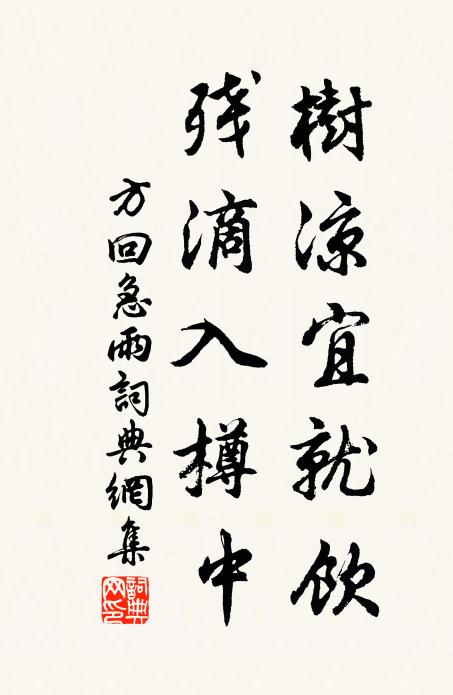 樹凉宜就飲
残滴入樽中
方回急雨詞典網集
詞典网印